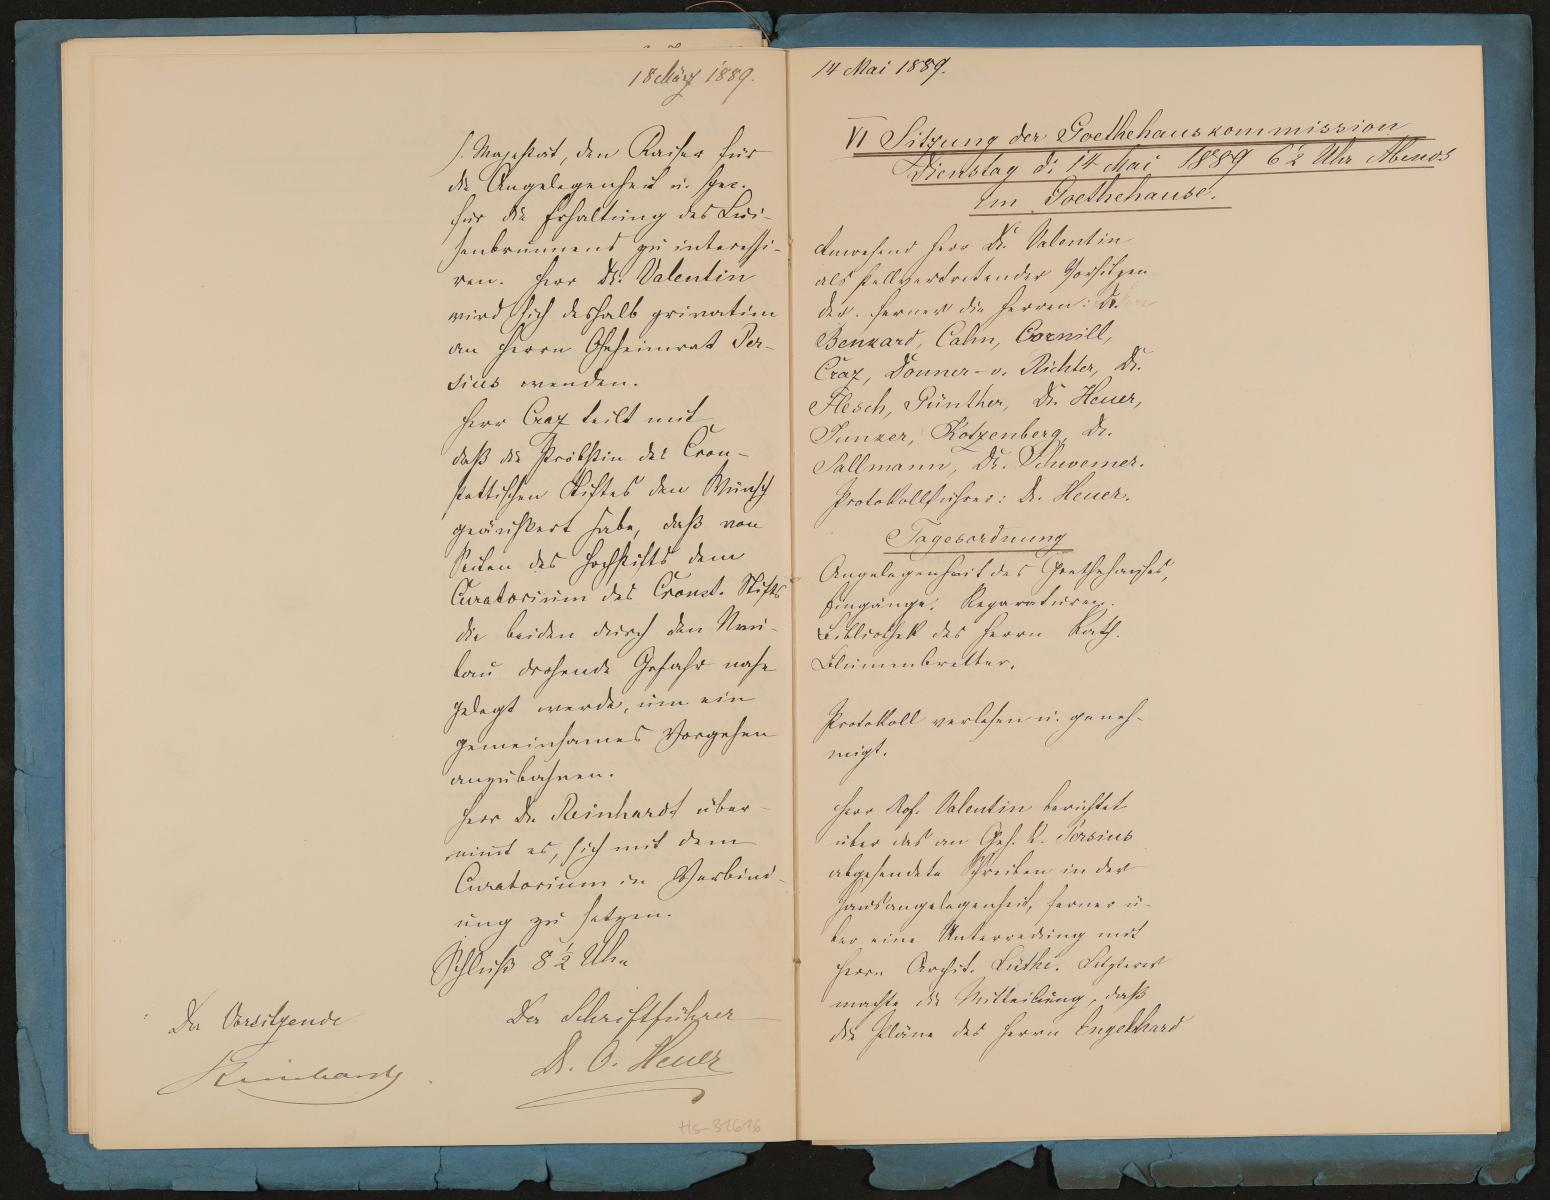 18 März 1889.
S. Majestät, den Kaiser für
die Angelegenheit u. spec.
für die Erhaltung des Lui-
senbrunnens zu interessi-
ren. Herr Dr. Valentin
wird sich deshalb privatim
an Herrn Geheimrat Per-
sius wenden.
Herr Craz teilt mit
daß die Pröbstin des Cron-
stettischen Stiftes den Wunsch
geäußert habe, daß von
Seiten des Hochstifts dem
Curatorium des Cronst. Stifts
die beiden durch den Neu-
bau drohende Gefahr nahe
gelegt werde, um ein
gemeinsames Vorgehen
anzubahnen.
Herr Dr. Reinhardt über-
nimt es, sich mit dem
Curatorium in Verbind-
ung zu setzen.
Schluß 8 1/2 Uhr
Der Vorsitzende
Reinhardt
Der Schriftführer
Dr. O. Heuer
Hs-31616
14 Mai 1889.
VI Sitzung der Goethehauskommission
Dienstag d. 14 Mai 1889 6 1/2 Uhr Abends
im Goethehause.
Anwesend Herr Dr. Valentin
als stellvertretender Vorsitzen-
der. ferner die Herren: Dr.
Benkard, Cahn, Cornill,
Craz, Donner-v. Richter, Dr.
Flesch, Günther, Dr. Heuer,
Junker, Kotzenberg, Dr.
Sallmann, Dr. Schwemer.
Protokollführer: Dr. Heuer.
Tagesordnung
Angelegenheit des Goethehauses,
Eingänge. Reparaturen.
Bibliothek des Herrn Rath.
Blumenbretter.
Protokoll verlesen u. geneh-
migt.
Herr Prof. Valentin berichtet
über das an Geh. R. Persius
abgesendete Schreiben in der
Hausangelegenheit, ferner ü-
ber eine Unterredung mit
Herrn Archit. Lüthi. Letzterer
machte die Mitteilung, daß
die Pläne des Herrn Engelhard